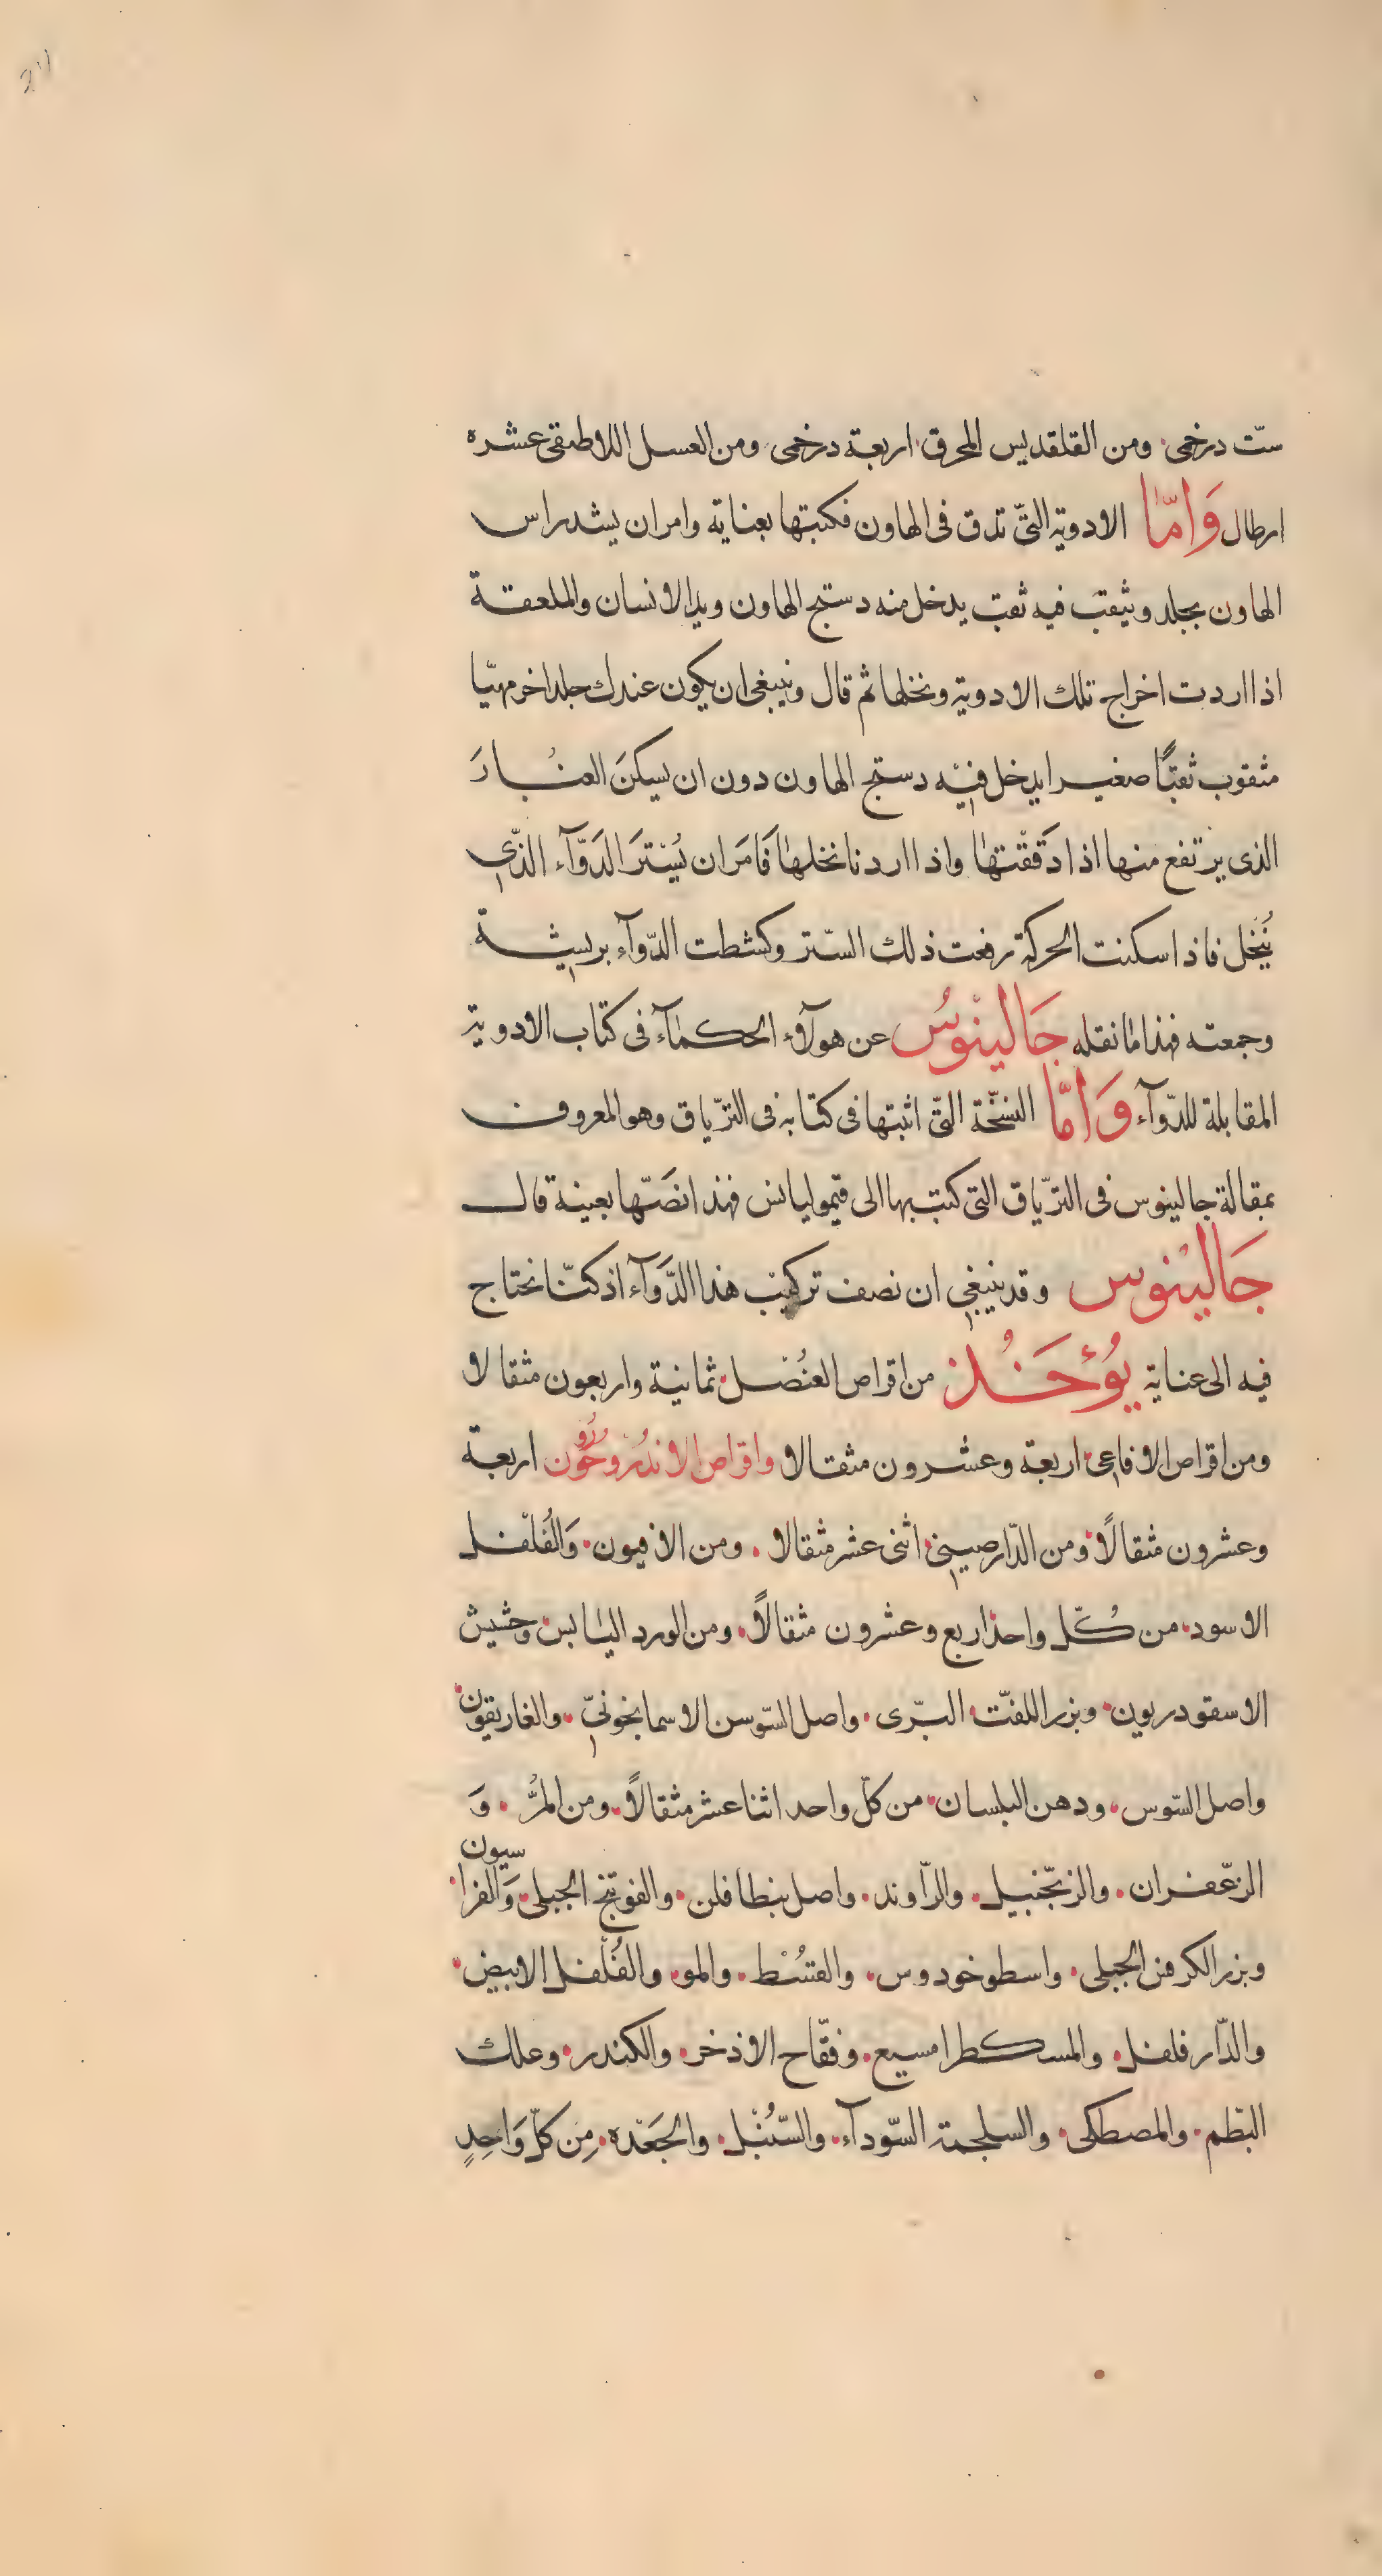 ستّ درخمى ومن القلقديس المحرق اربعة درخمى ومن العسل اللاطيقى عشره
ارطال وَامّا الادوية التىّ تدق فى الهاون فكتبتها بعناية وامر ان يشد راس
الهاون بجلد ويثقب فيه ثقب يدخل منه دستج الهاون ويد الانسان والملعقة
اذا اردت اخراج تلك الادوية ونخلها ثم قال وينبغى ان يكون عندك جلد اخر مهيّا
مثقوب ثقبًا صغيرا يدخل فيه دستج الهاون دون ان يسكنَ الغبارَ
الذى يرتفع منها اذا دَققتها واذا اردنا نخلها فَامَر ان يُسْترَ الدَوّآء الذّى
يُنخل فاذا سكنت الحركة رفعت ذلك السّتر وكشطت الدّوآء بريشة
وجمعته فهذا ما نقله جَالينْوسُ عن هولآء الحكمآء فى كتاب الادوية
المقابلة للدّوآء وَامّا النسخّة التىّ اثبتها فى كتابه فى الترّياق وهو المعروف
بمقالة جالينوس فى الترّياق التى كتب بها الى قيموليانس فهذا نصّها بعينة قال
جَاليْنوس وقد ينبغى ان نصف تركيب هذا الدَّوَآء اذ كنّا نحتاج
فيه الى عناية يُؤْخَذُ من اقراص العنُصّل ثمانية واربعون مثقالا
ومن اقراص الافاعى اربعة وعشرون مثقالا واقراص الاندُروخُون اربعة
رُو
وعشرون مثقالًا ومن الدّارصينى اثنى عشر مثقالا ومن الافيون وَالفُلفل
الاسود من كُلّ واحد اربع وعشرون مثقالًا ومن الورد اليابس وحشيش
الاسقوردريون وبزر اللفت البّرى واصل السّوسن الاسمانجونىّ والغاريقون
واصل السّوس ودهن البلسان من كلّ واحد اثنا عشر مثقالًا ومن المرُّ وَ
الزعّفران والزنجّبيل والرّاوند واصل بنطافلن والفوتنج الجبلى وَالفرا
سيون
وبزر الكرفس الجبلى واسطوخودوس والقسُط والمو والفُلفل الابيض
والدّارفلفل والمسكطرامسيع وفقّاح الاذخر والكندر وعلك
البّطم والمصطكى والسليخة السّودآء والسّنُبْل والجَعَدْه مِن كلّ وَاحِدٍ